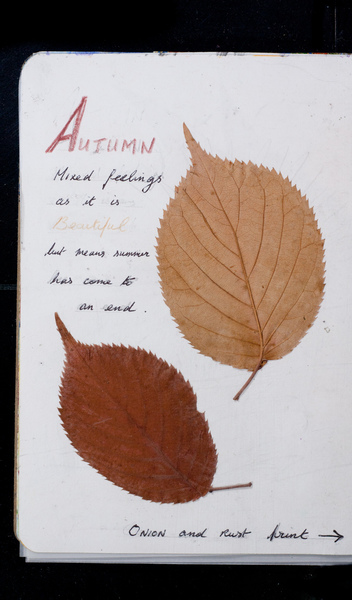 AUTUMN
Mixed feelings
as it is
Beautiful
but means summer
has come to
an end.
ONION and rust print →